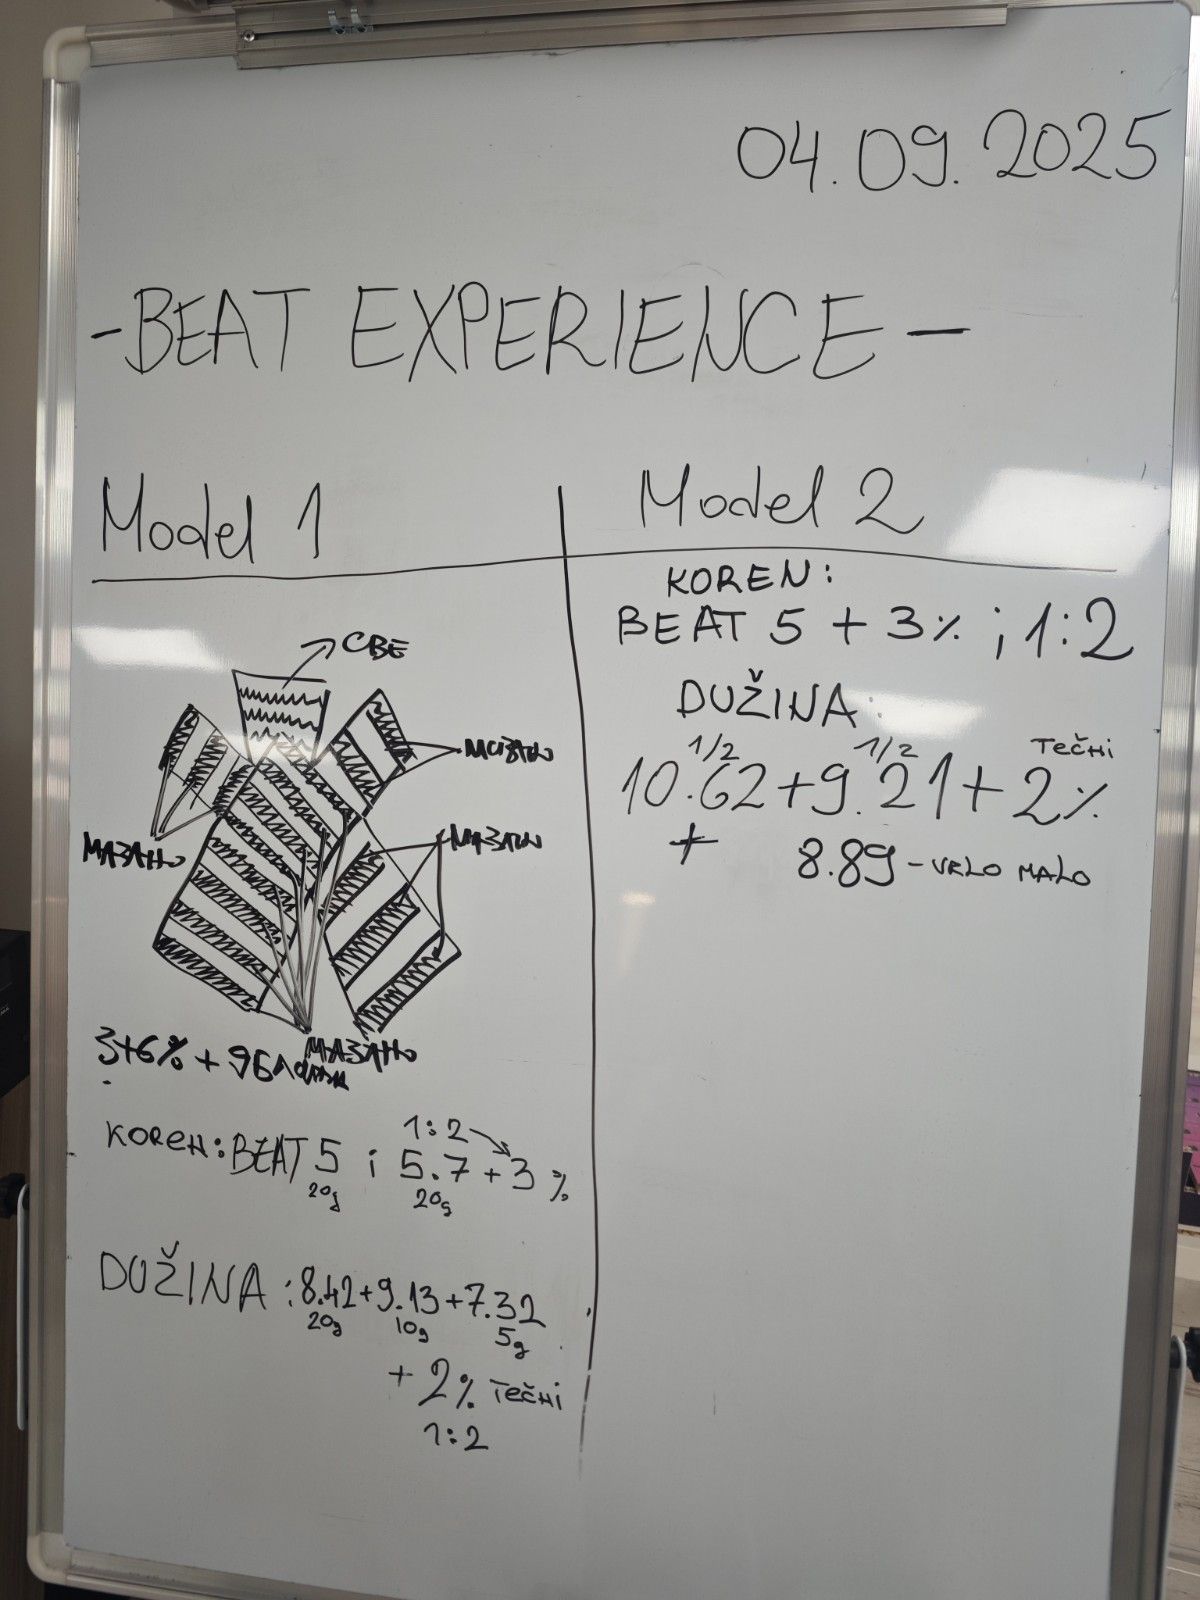 04.09.2025
- BEAT EXPERIENCE -
Model 1
СВЕ
МАЗАНО
МАЗАНО
МАЗАНО
МАЗАНО
3+6% + 9%
KOREN: BEAT 5 i 5.7 + 3 %
1:2
20g 20g
DUŽINA: 8.42+9.13+7.32
20g 10g 5g
+ 2% TEČNI
1:2
Model 2
KOREN:
BEAT 5 + 3% ; 1:2
DUŽINA:
1/2 1/2 TEČNI
10.62+9.21+2%
+ 8.89 - VRLO MALO